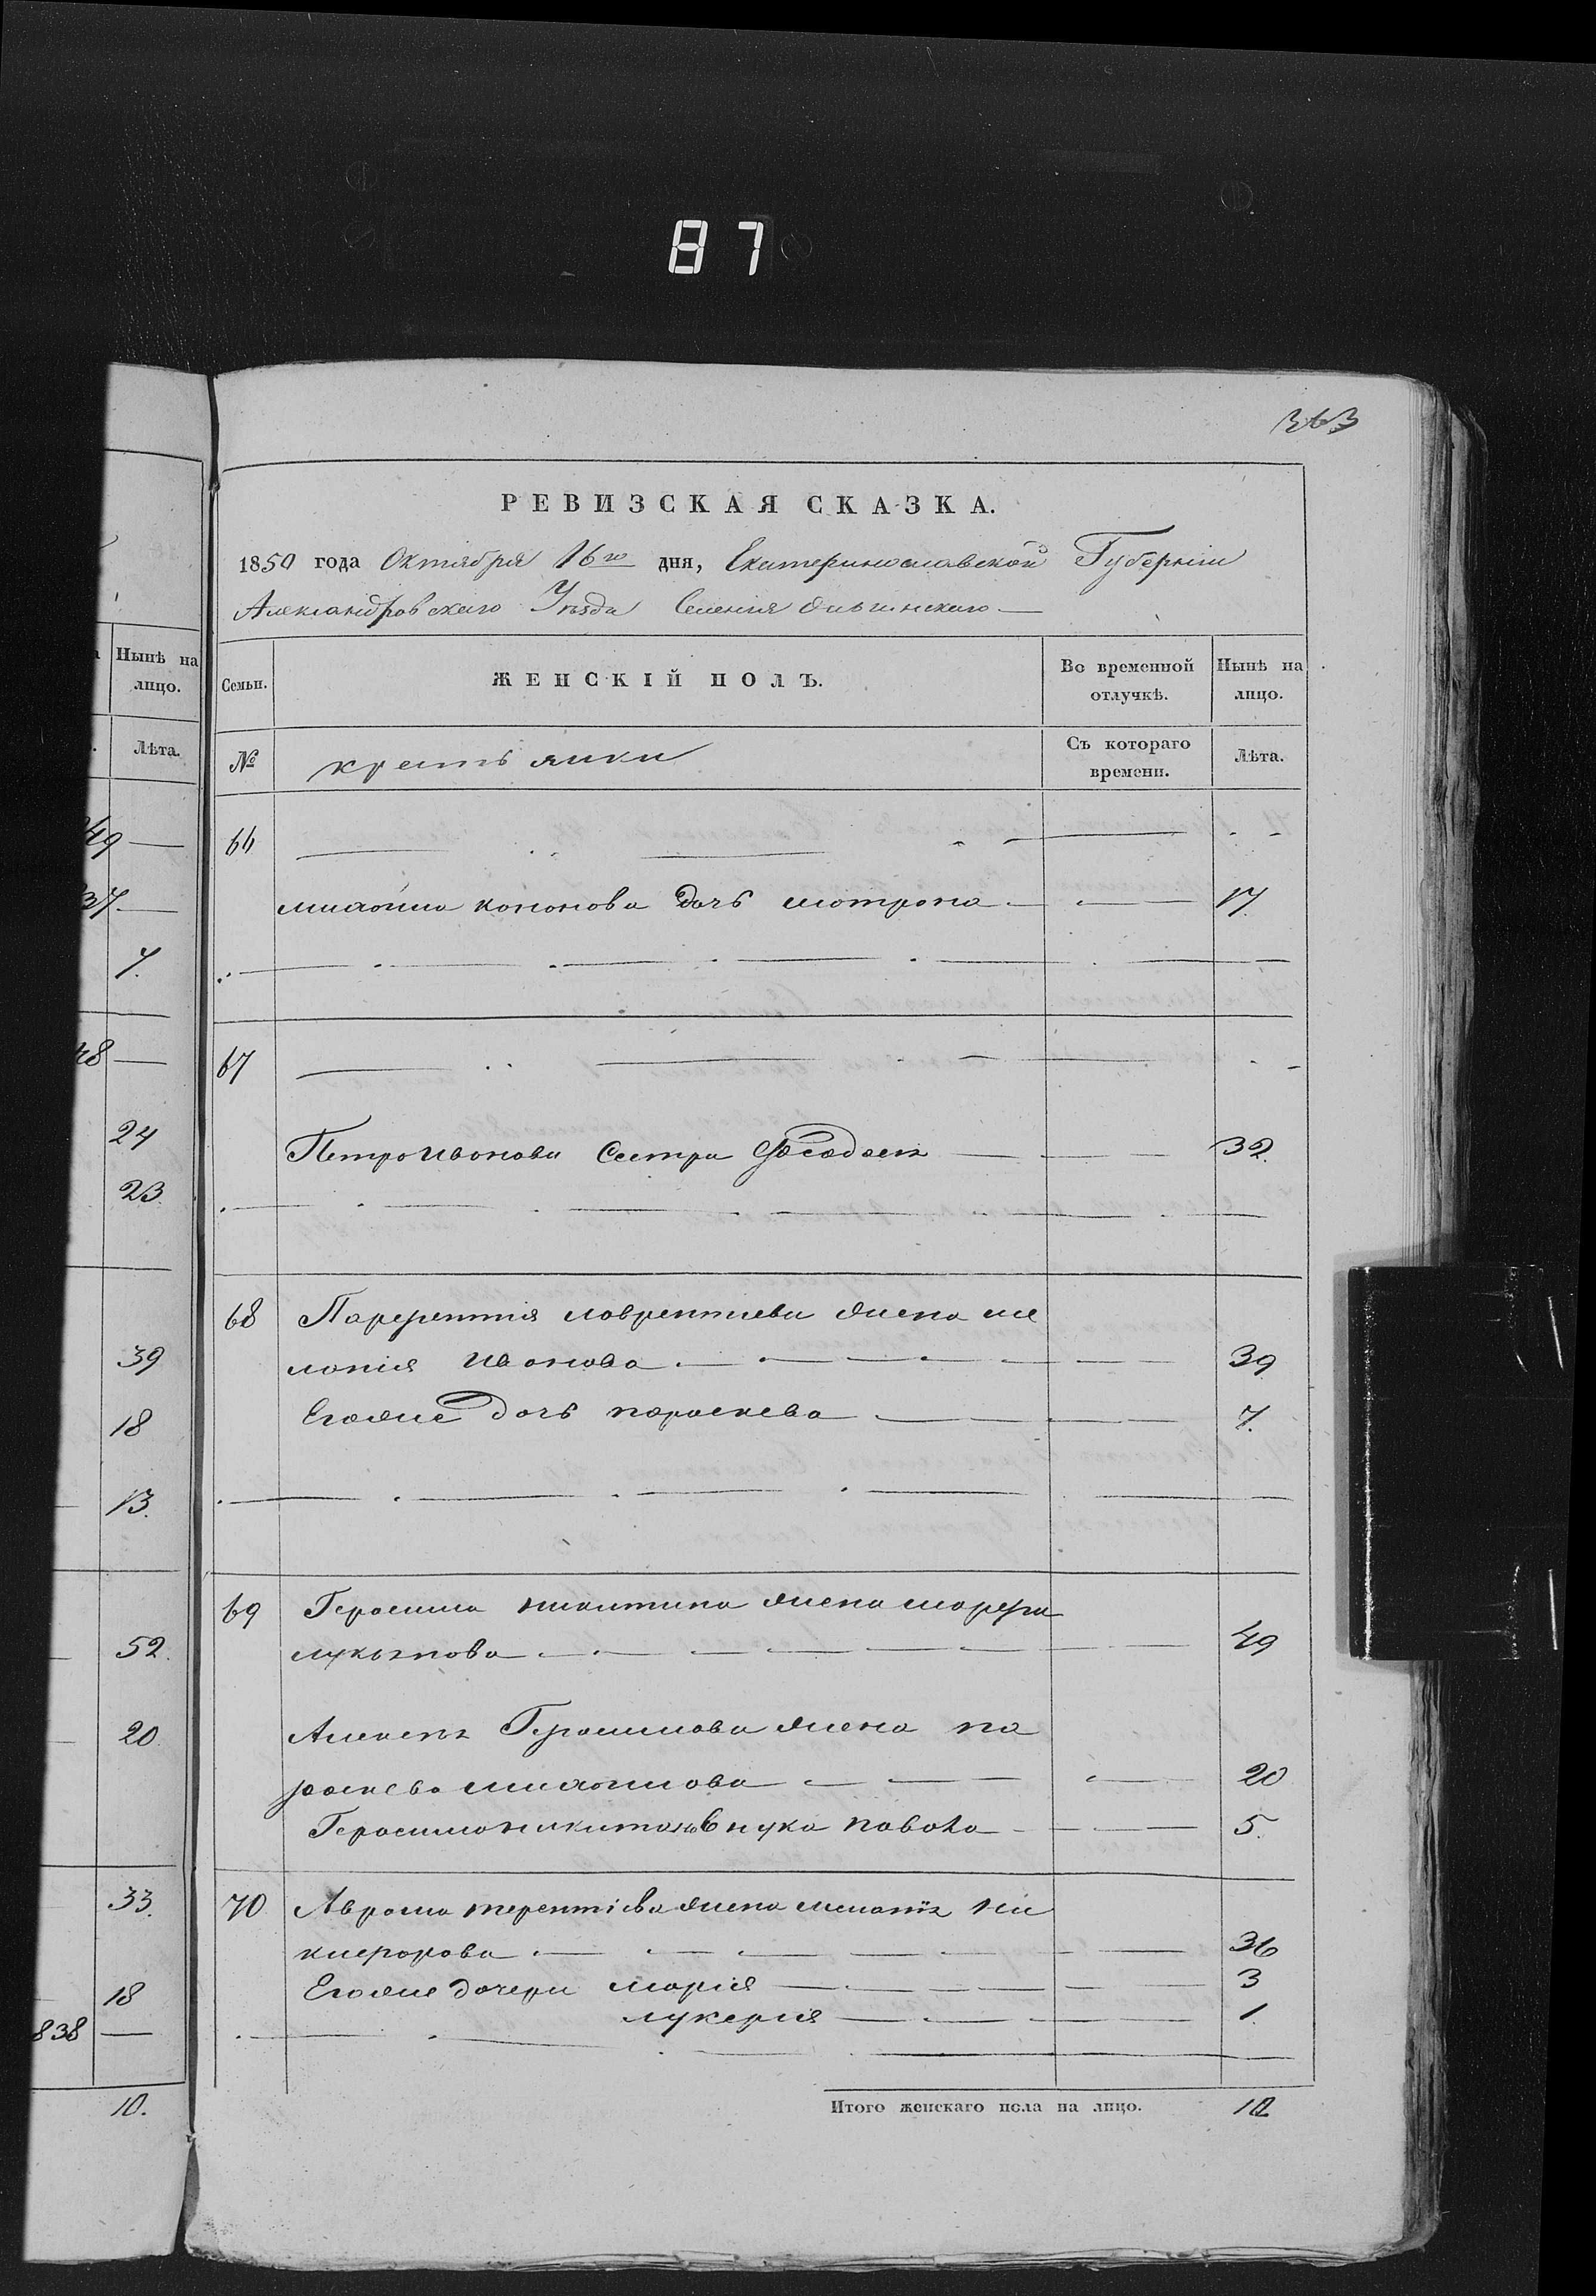 87
363
РЕВИЗСКАЯ СКАЗКА.
1850 года Октября 16го дня, Екатеринославской Губернии
Александровскаго Уѣзда Селения
Нынѣ на лицо.
Лѣта.
49 —
37 —
7.
48 —
24
23.
39
18
13.
52.
20.
33.
18
838 —
10.
Семьи. ЖЕНСКІЙ ПОЛЪ. Во временной отлучкѣ. Нынѣ на лицо.
№ крестьянки Съ котораго времени. Лѣта.
66
михайла кононова дочь мотрона — 17.
67
Петра иванова Сестра Феодося — 32.
68 Парферитія лаврентиева жена ме
ланія иванова — 39
Егоже дочь параскева — 7.
69 Герасима никитина жена марфа
лукьянова — 49
Алексѣя Герасимова жена па
раскева михайлова — 20
Герасима никитина внука павола — 5.
70 Аврама терентіева жена меланія ни
кифорова — 36
Егоже дочери марія — 3
лукерія — 1.
Итого женскаго пола на лицо. 10